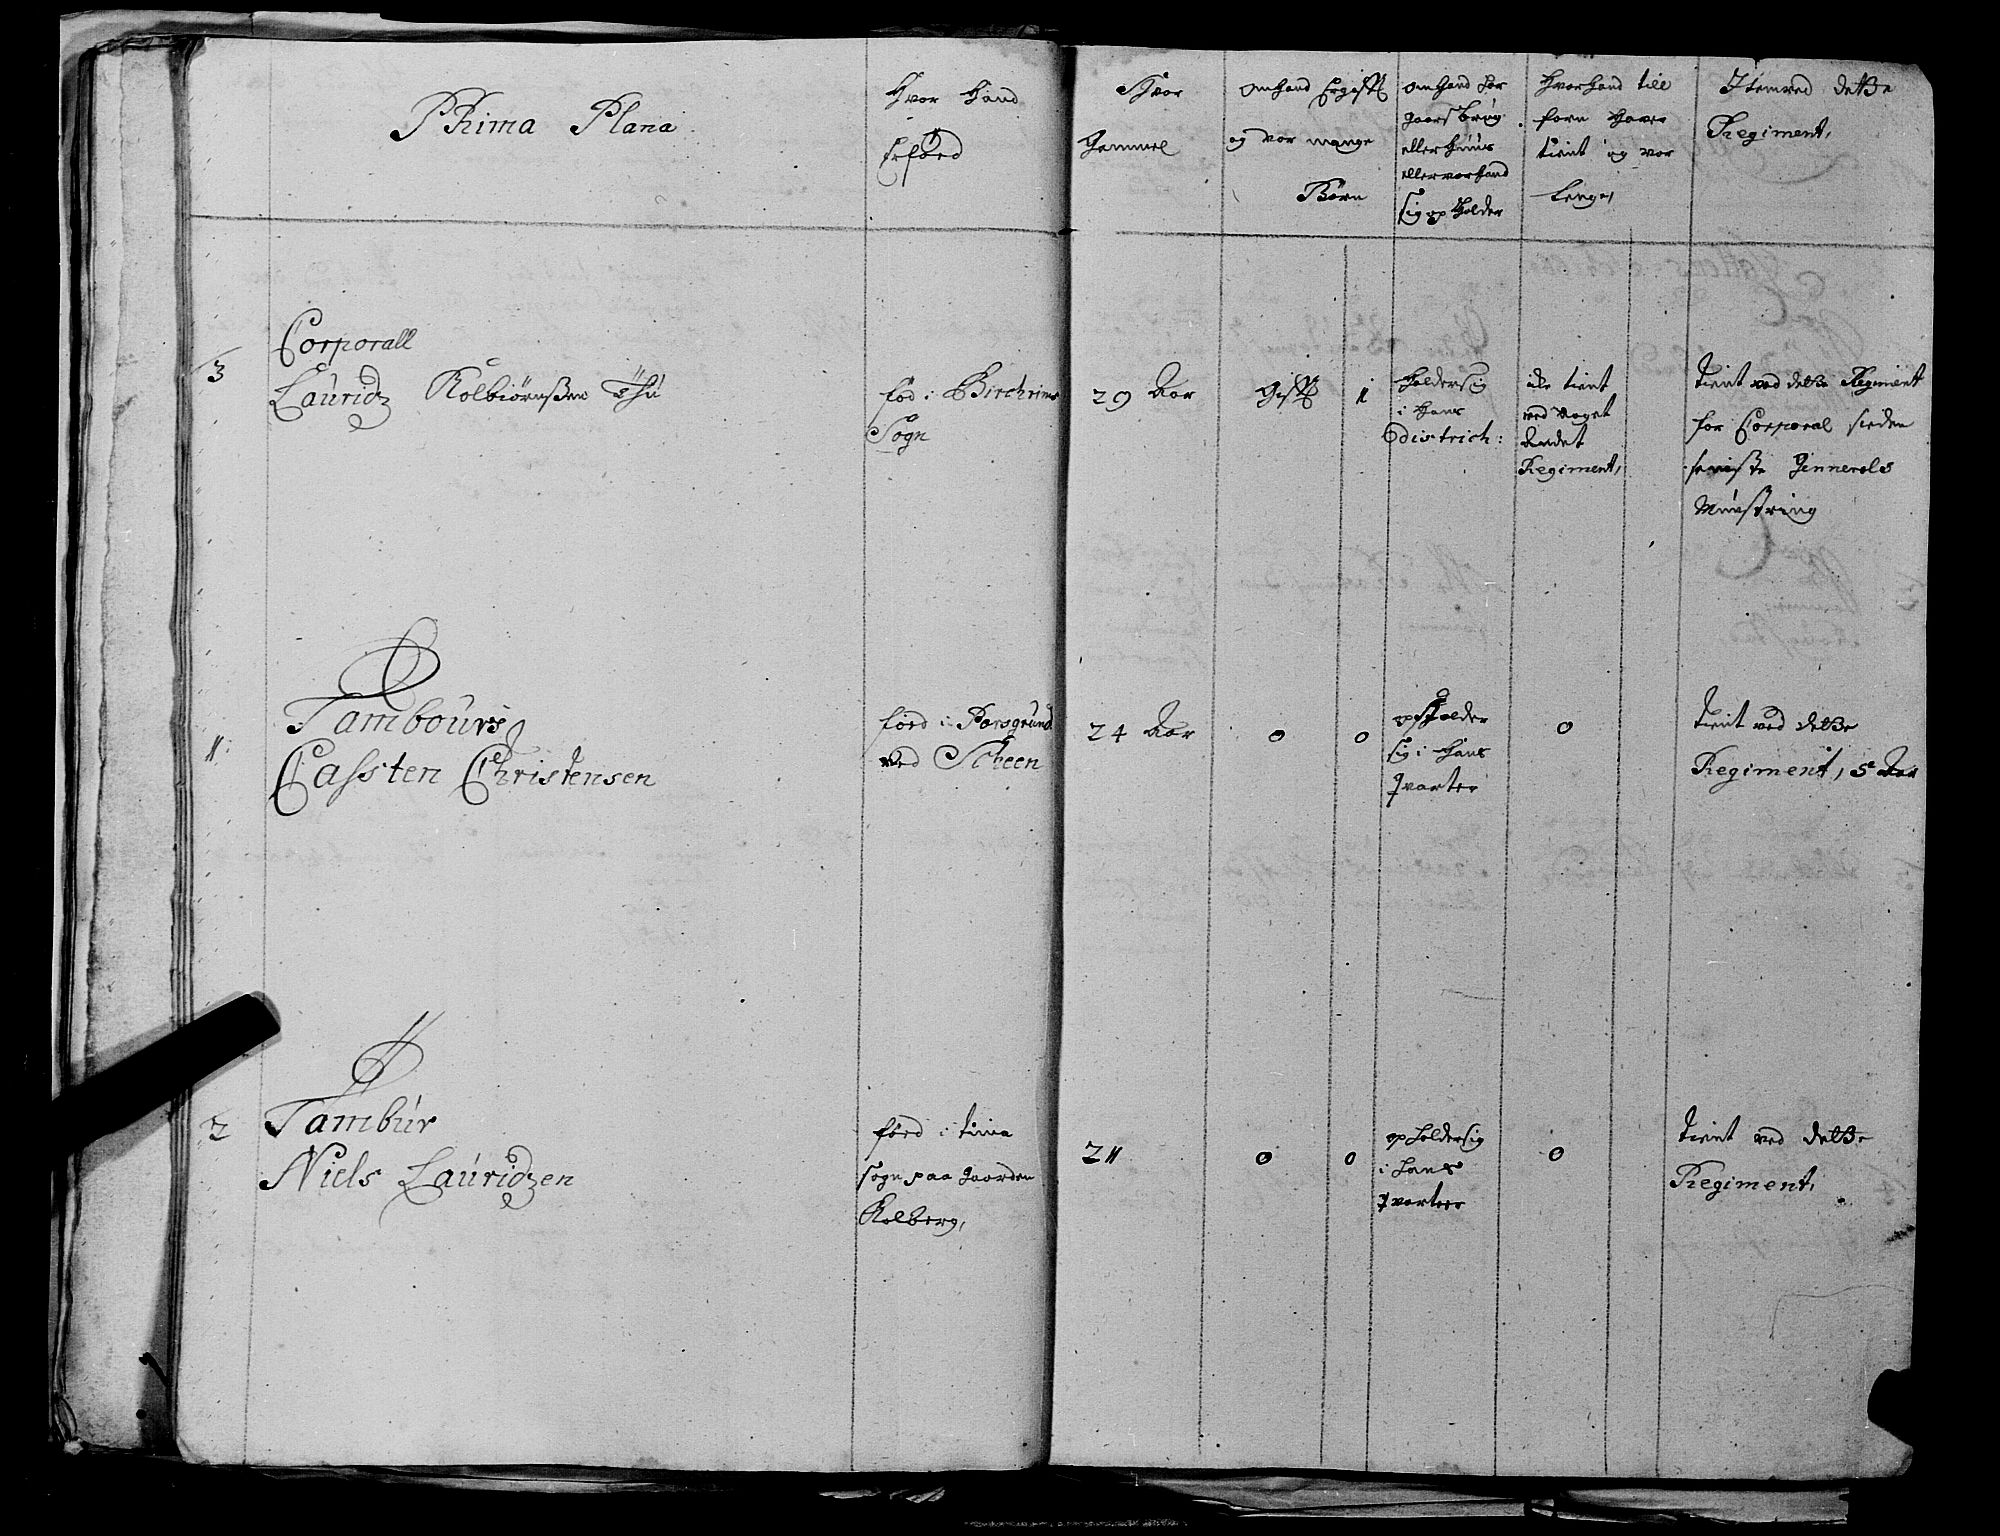 PRima Plana
Hvor Hand
Erføed
Hvor
Gammel
Om Hand Ergift
og vor mange
Børn
om Hand har
gaars brug
eller Huus
eller vor Hand
sig op Holder
Hvor Hand till
forn Haver
tient og vor
Lenge,
Item ved dette
Regiment,
3
Corporall
Lauridz Kolbiørnßen Thù
fød i Birchrims
Sogn
29 Aar
Gift
1
Holder sig
i Hans
district:
ike tient
ved noget
Andet
Regiment,
tient ved dette Regiment
for Corporal siden
seniste Gennerals
Mùnstring
1:
Tambours
Cassten Christensen
føed i Porsgrund
ved Scheen
24 Aar
0
0
op Holder
sig i Hans
qvarteer
0
tient ved dette
Regiment, 5 Aar
2
Tambùr
Niels Lauridzen
føed i
sogn paa gaarden
Kolberg,
21
0
0
op Holder sig
i Hans
qvarteer
0
tient ved dette
Regiment,